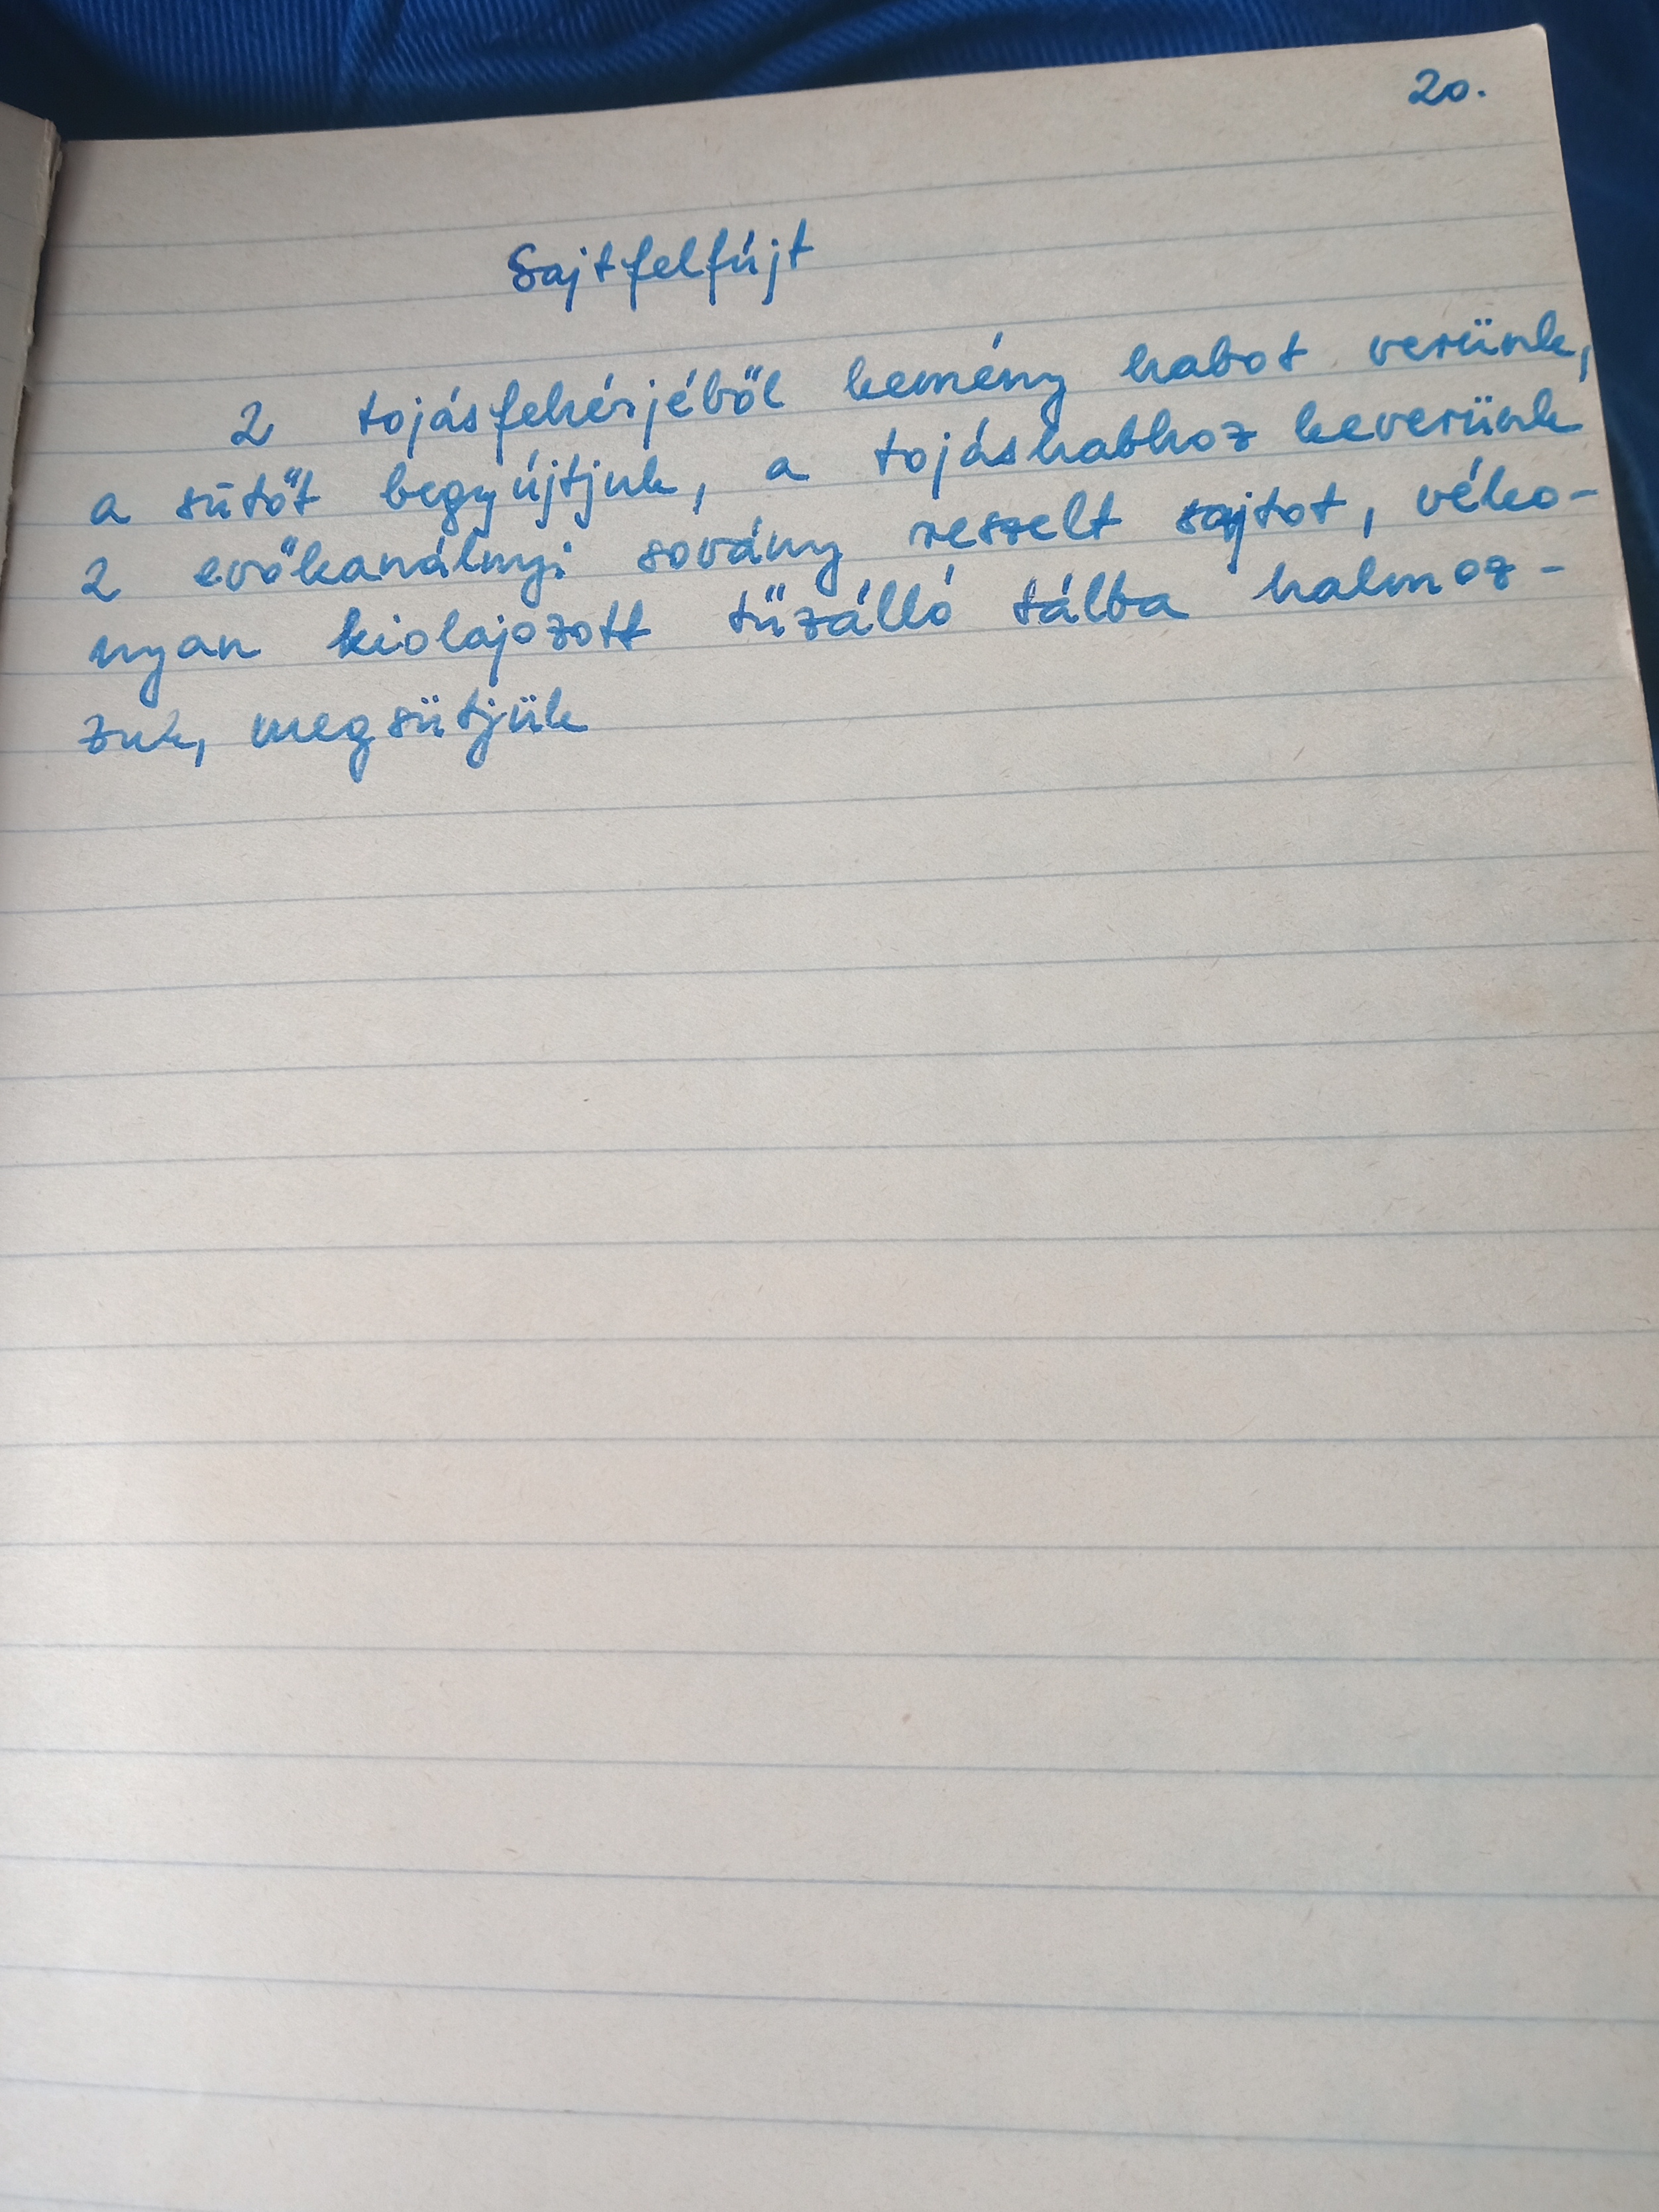 20.
Sajtfelfújt
2 tojásfehérjéből kemény habot verünk,
a sütőt begyújtjuk, a tojáshabhoz keverünk
2 evőkanálnyi sovány reszelt sajtot, véko-
nyan kiolajozott tűzálló tálba halmoz-
zuk, megsütjük